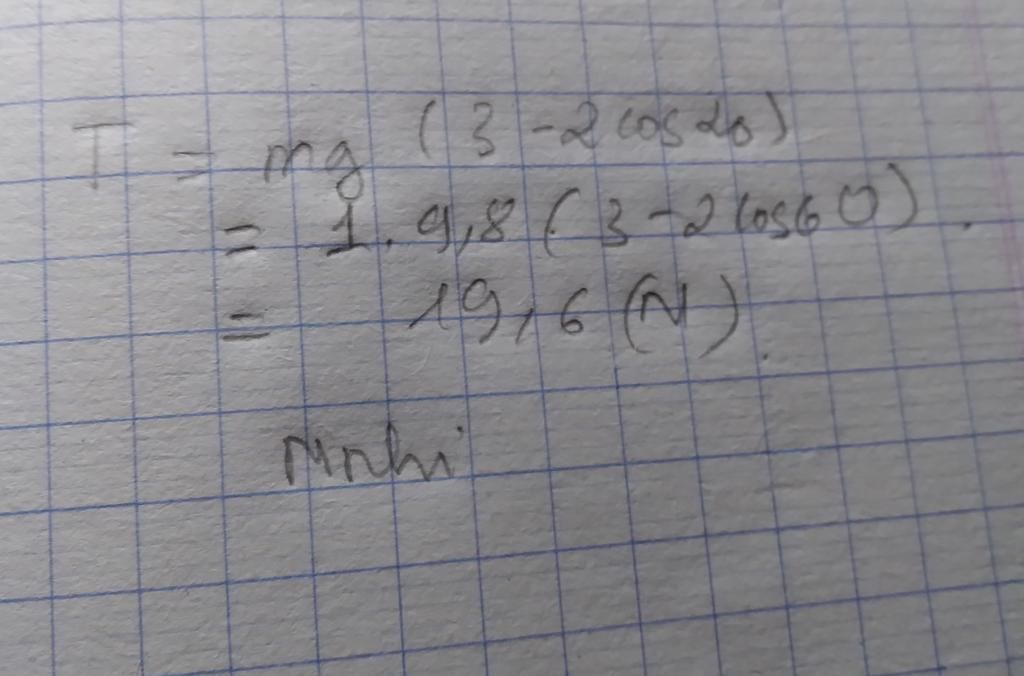 T = mg (3 - 2 cos α₀)
= 1. 9,8 (3 - 2 cos 60).
= 19,6 (N).
Mnhi